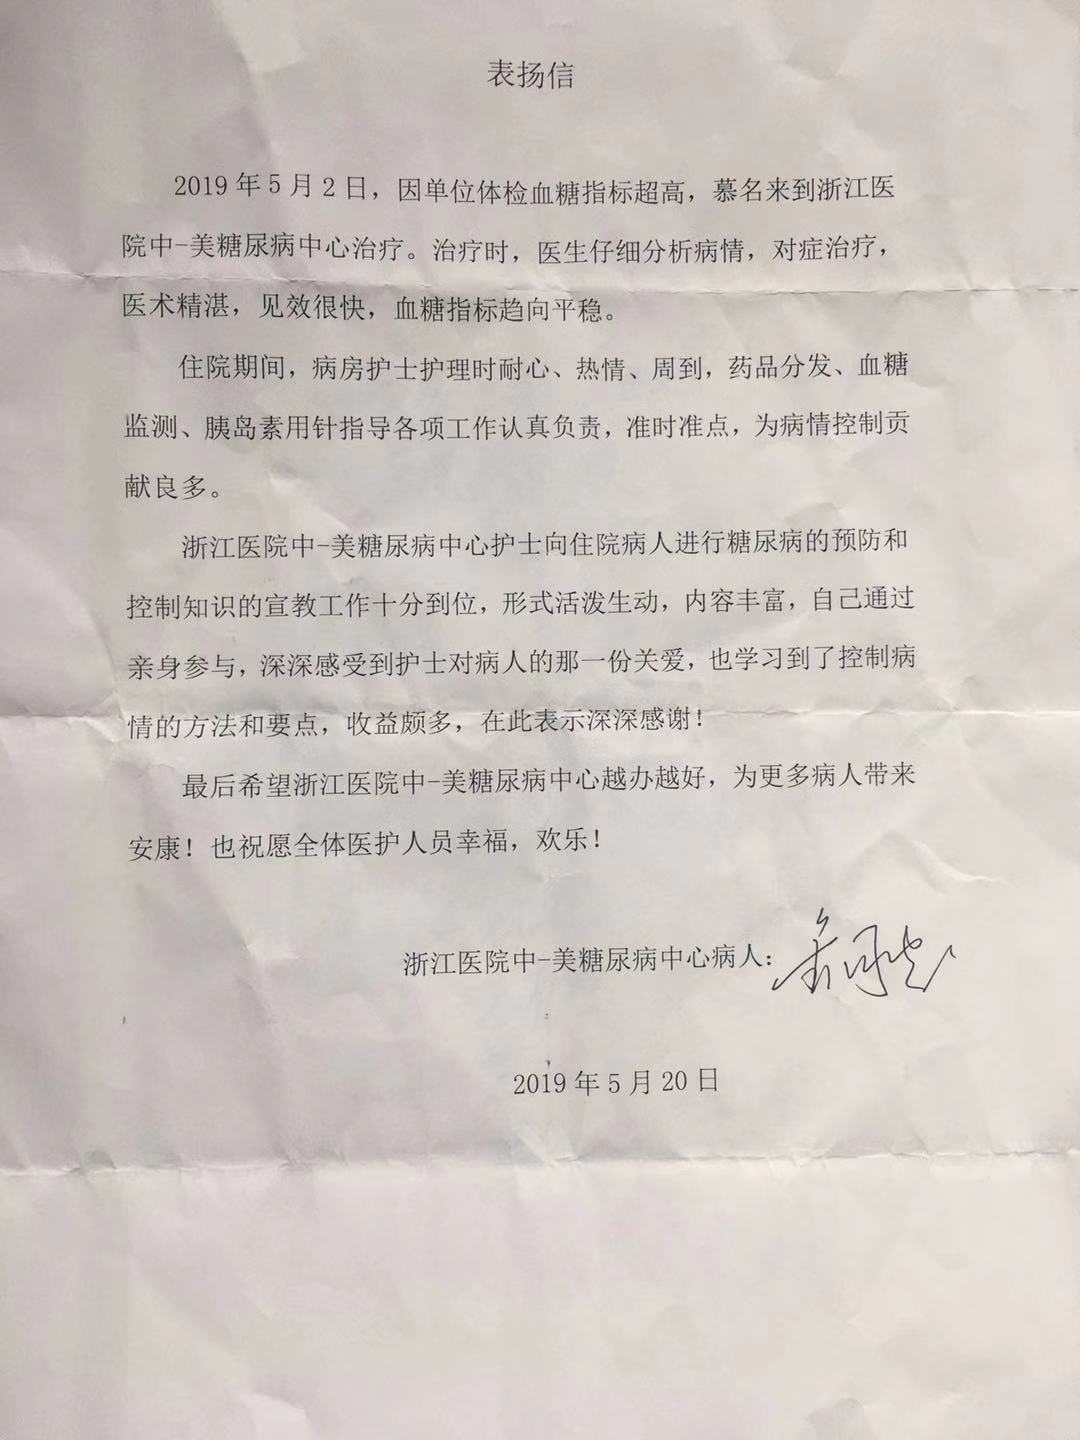 表扬信
2019年5月2日，因单位体检血糖指标超高，慕名来到浙江医
院中-美糖尿病中心治疗。治疗时，医生仔细分析病情，对症治疗，
医术精湛，见效很快，血糖指标趋向平稳。
住院期间，病房护士护理时耐心、热情、周到，药品分发、血糖
监测、胰岛素用针指导各项工作认真负责，准时准点，为病情控制贡
献良多。
浙江医院中-美糖尿病中心护士向住院病人进行糖尿病的预防和
控制知识的宣教工作十分到位，形式活泼生动，内容丰富，自己通过
亲身参与，深深感受到护士对病人的那一份关爱，也学习到了控制病
情的方法和要点，收益颇多，在此表示深深感谢！
最后希望浙江医院中-美糖尿病中心越办越好，为更多病人带来
安康！也祝愿全体医护人员幸福，欢乐！
浙江医院中-美糖尿病中心病人：
2019年5月20日